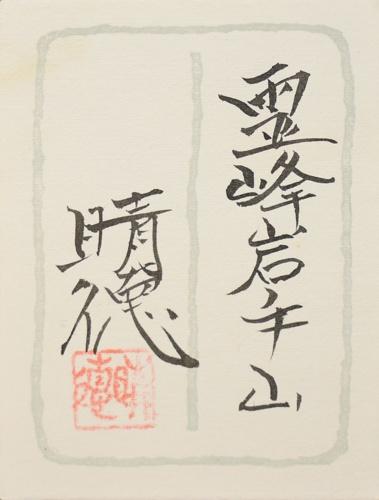 霊峰岩手山
晴徳